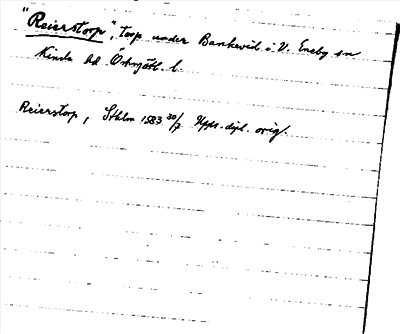 "Reierstorp", torp under Bankevid i V. Eneby sn
Kinda hd Östergötl. l.
Reierstorp, Sthlm 1583 30/7 Upps. dipl. orig.